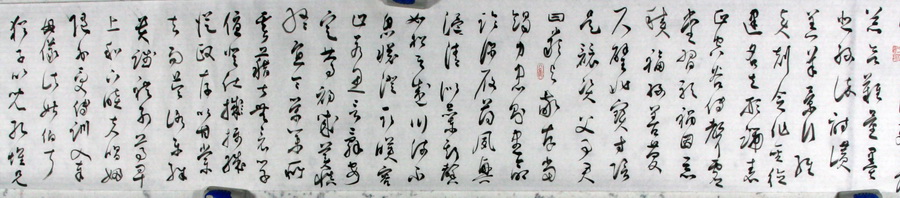 器欲難量墨
悲絲染詩讚
羔羊景行維
賢剋念作聖
德建名立形端表
正空谷傳聲虛
堂習聽禍因惡
積福緣善慶
尺璧非寶寸陰
是競資父事君
曰嚴與敬孝當
竭力忠則盡命
臨深履薄夙興
溫凊似蘭斯馨
如松之盛川流不
息淵澄取映容
止若思言辭安
定篤初誠美慎
終宜令榮業所
基籍甚無竟學
優登仕攝職從
政存以甘棠
去而益詠樂殊
貴賤禮別尊卑
上和下睦夫唱婦
隨外受傅訓入奉
母儀諸姑伯叔
猶子比兒孔懷兄